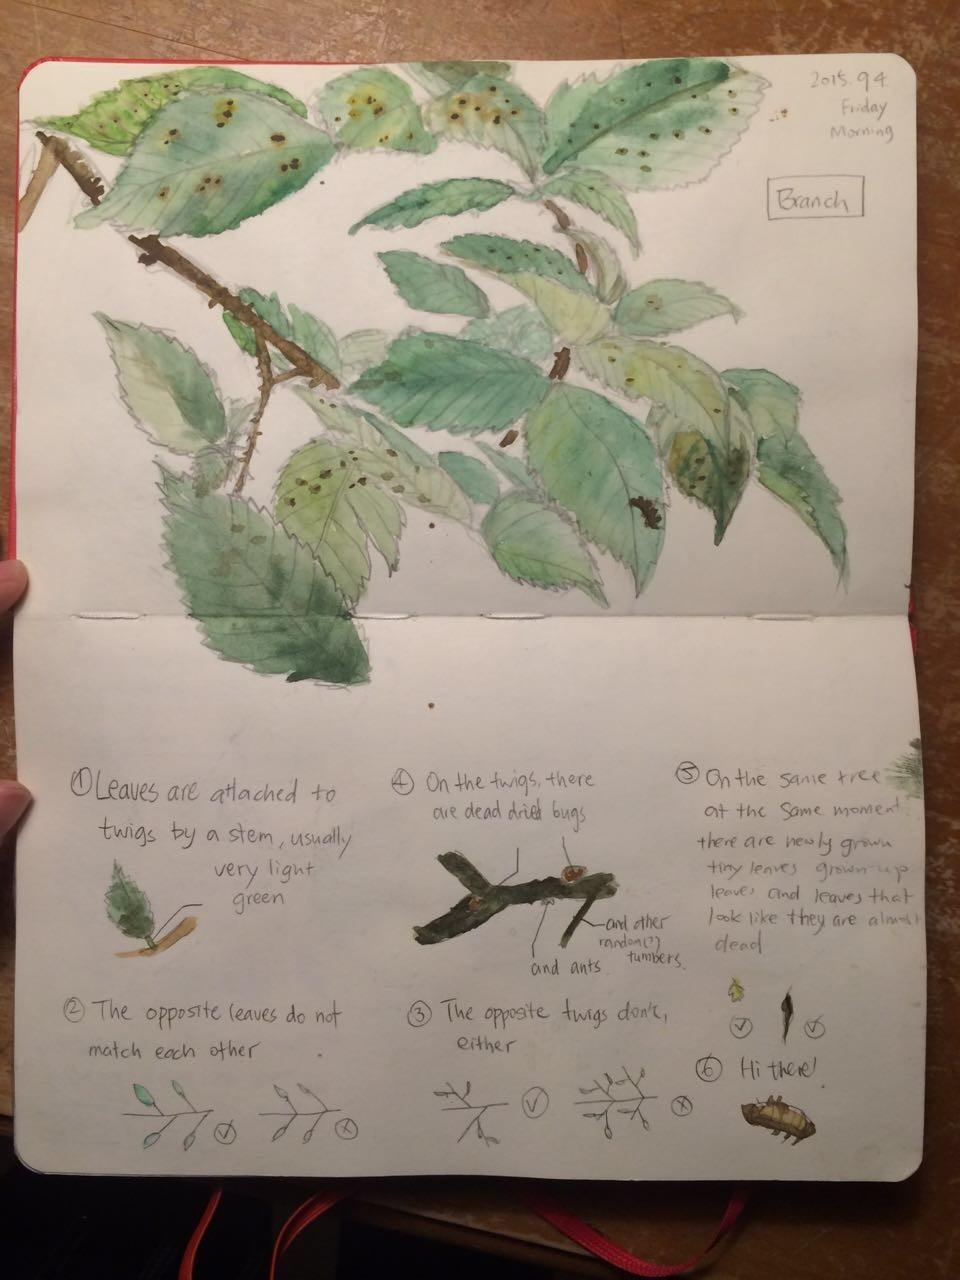 2015. 9 4.
Friday
Morning
Branch
① Leaves are attached to
twigs by a stem, usually
very light
green
② The opposite leaves do not
match each other
③ The opposite twigs don't,
either
④ On the twigs, there
are dead dried bugs
and other
random(?)
tumbers.
and ants.
⑤ On the same tree
at the same moment.
there are newly grown
tiny leaves grown-up
leaves and leaves that
look like they are almost
dead
⑥ Hi there!